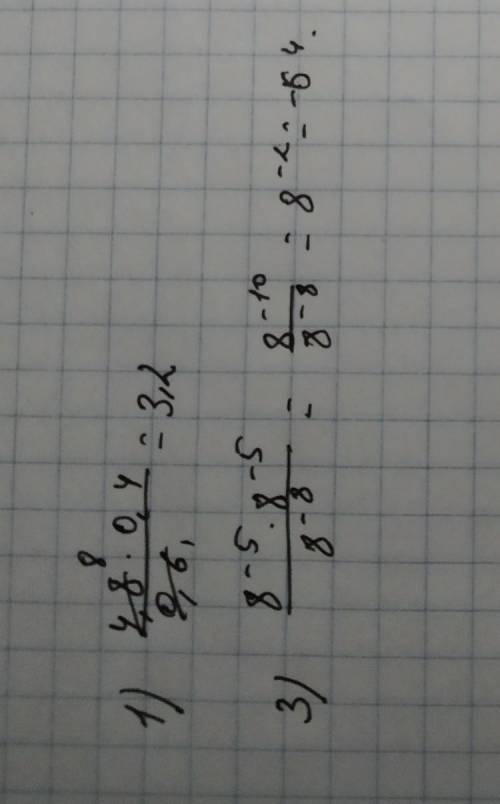 1) 4,8 · 0,4 / 0,6 = 3,2
3) 8^-5 · 8^-5 / 8^-8 = 8^-10 / 8^-8 = 8^-2 = -64.